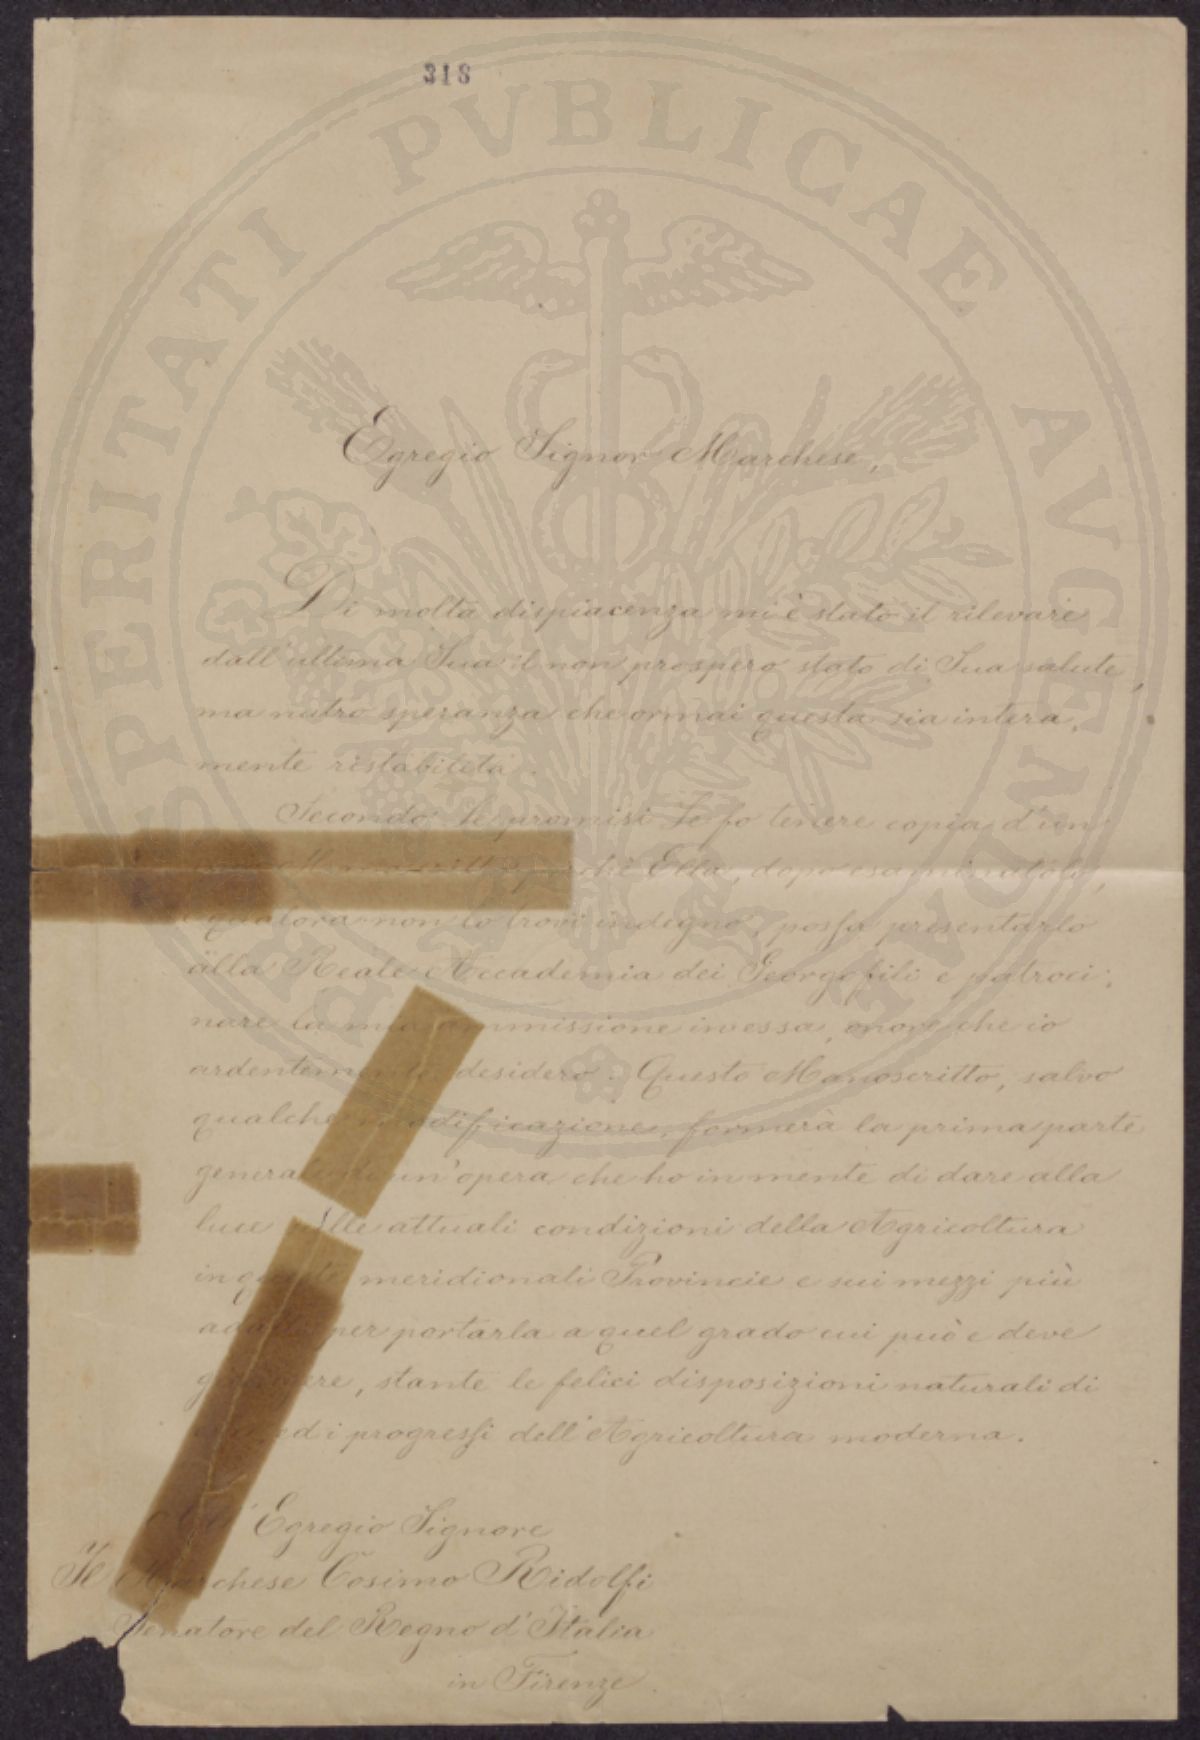 318
PROSPERITATI PVBLICAE AVGENDAE
Egregio Signor Marchese,
Di molta dispiacenza mi è stato il rilevare
dall'ultima Sua il non prospero stato di Sua salute,
ma nutro speranza che ormai questa sia intera,
mente ristabilita.
Secondo Le promisi Le fo tenere copia d'un
manoscritto perchè Ella, dopo esaminatolo,
e qualora non lo trovi indegno, possa presentarlo
alla Reale Accademia dei Georgofili e patroci,
nare la mia ammissione in essa, onore che io
ardentemente desidero. Questo Manoscritto, salvo
qualche modificazione, formerà la prima parte
generale di un'opera che ho in mente di dare alla
luce sulle attuali condizioni della Agricoltura
in queste meridionali Provincie e sui mezzi più
adatti per portarla a quel grado cui può e deve
giungere, stante le felici disposizioni naturali di
ed i progressi dell'Agricoltura moderna.
All' Egregio Signore
Il Marchese Cosimo Ridolfi
Senatore del Regno d'Italia
in Firenze.